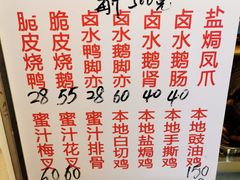 500
脆皮烧鸭
28
脆皮烧鹅
55
卤水鸭脚亦
28
卤水鹅脚亦
60
卤水鹅肾
40
卤水鹅肠
40
盐焗凤爪
蜜汁梅叉
60
蜜汁花叉
60
蜜汁排骨
本地白切鸡
本地盐焗鸡
本地手撕鸡
本地豉油鸡
150